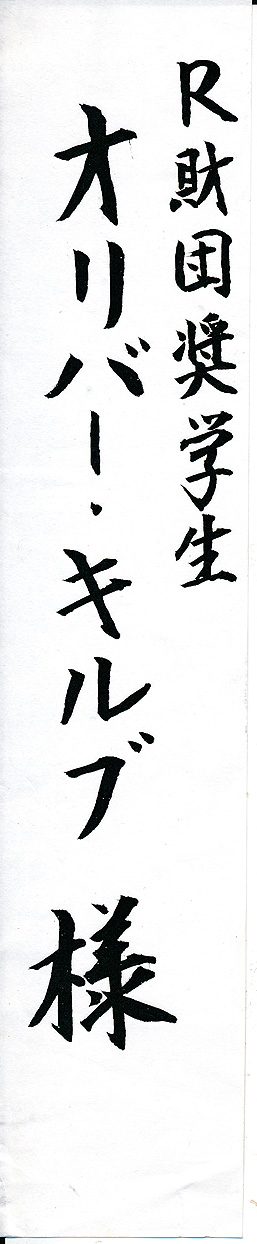 R財団奨学生
オリバー・キルブ 様